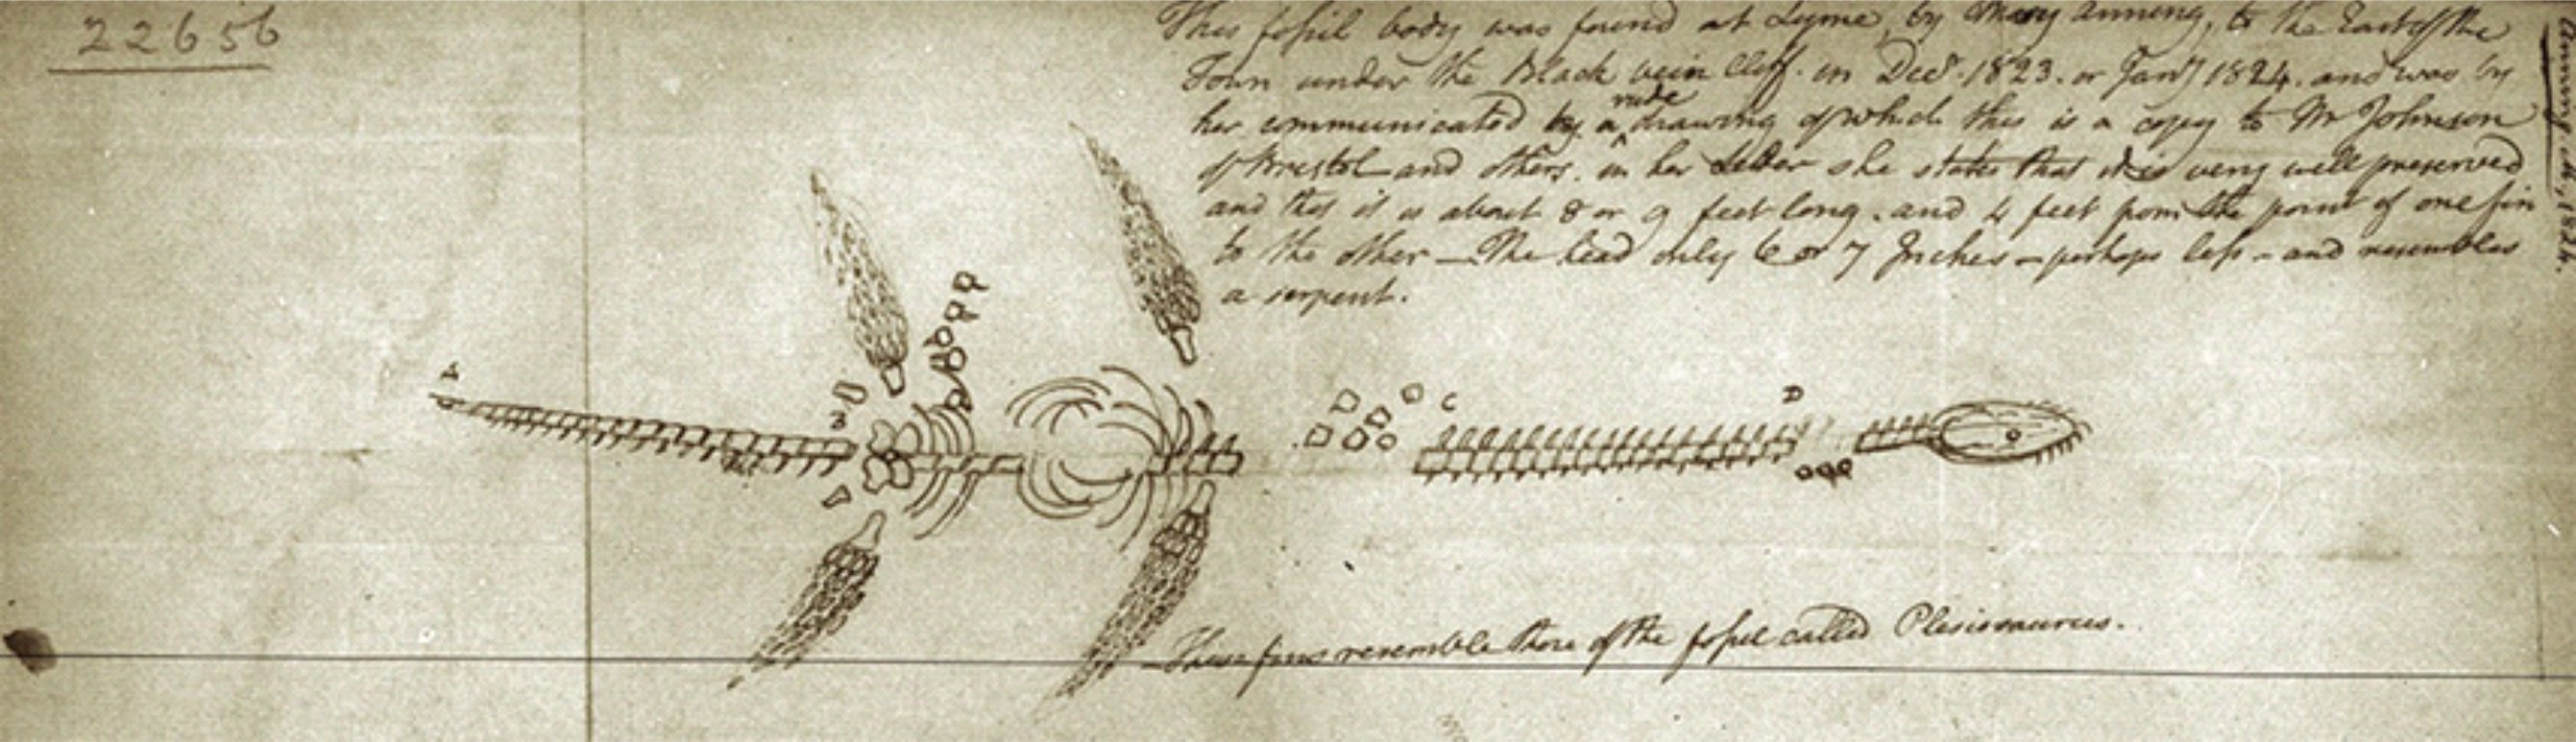 22656
This fossil body was found at Lyme, by Mary Anning, to the East of the
Town under the Black vein Cliff. in Decr. 1823. or Jany 1824. and was by
her communicated by a rude drawing of which this is a copy to Mr Johnson
of Bristol and others. in her Letter she states that it is very well preserved
and that it is about 8 or 9 feet long. and 4 feet from the point of one fin
to the other — The head only 6 or 7 Inches – perhaps less – and resembles
a serpent.
A
B
C
D
These fins resemble those of the fossil called Plesiosaurus.
1824.